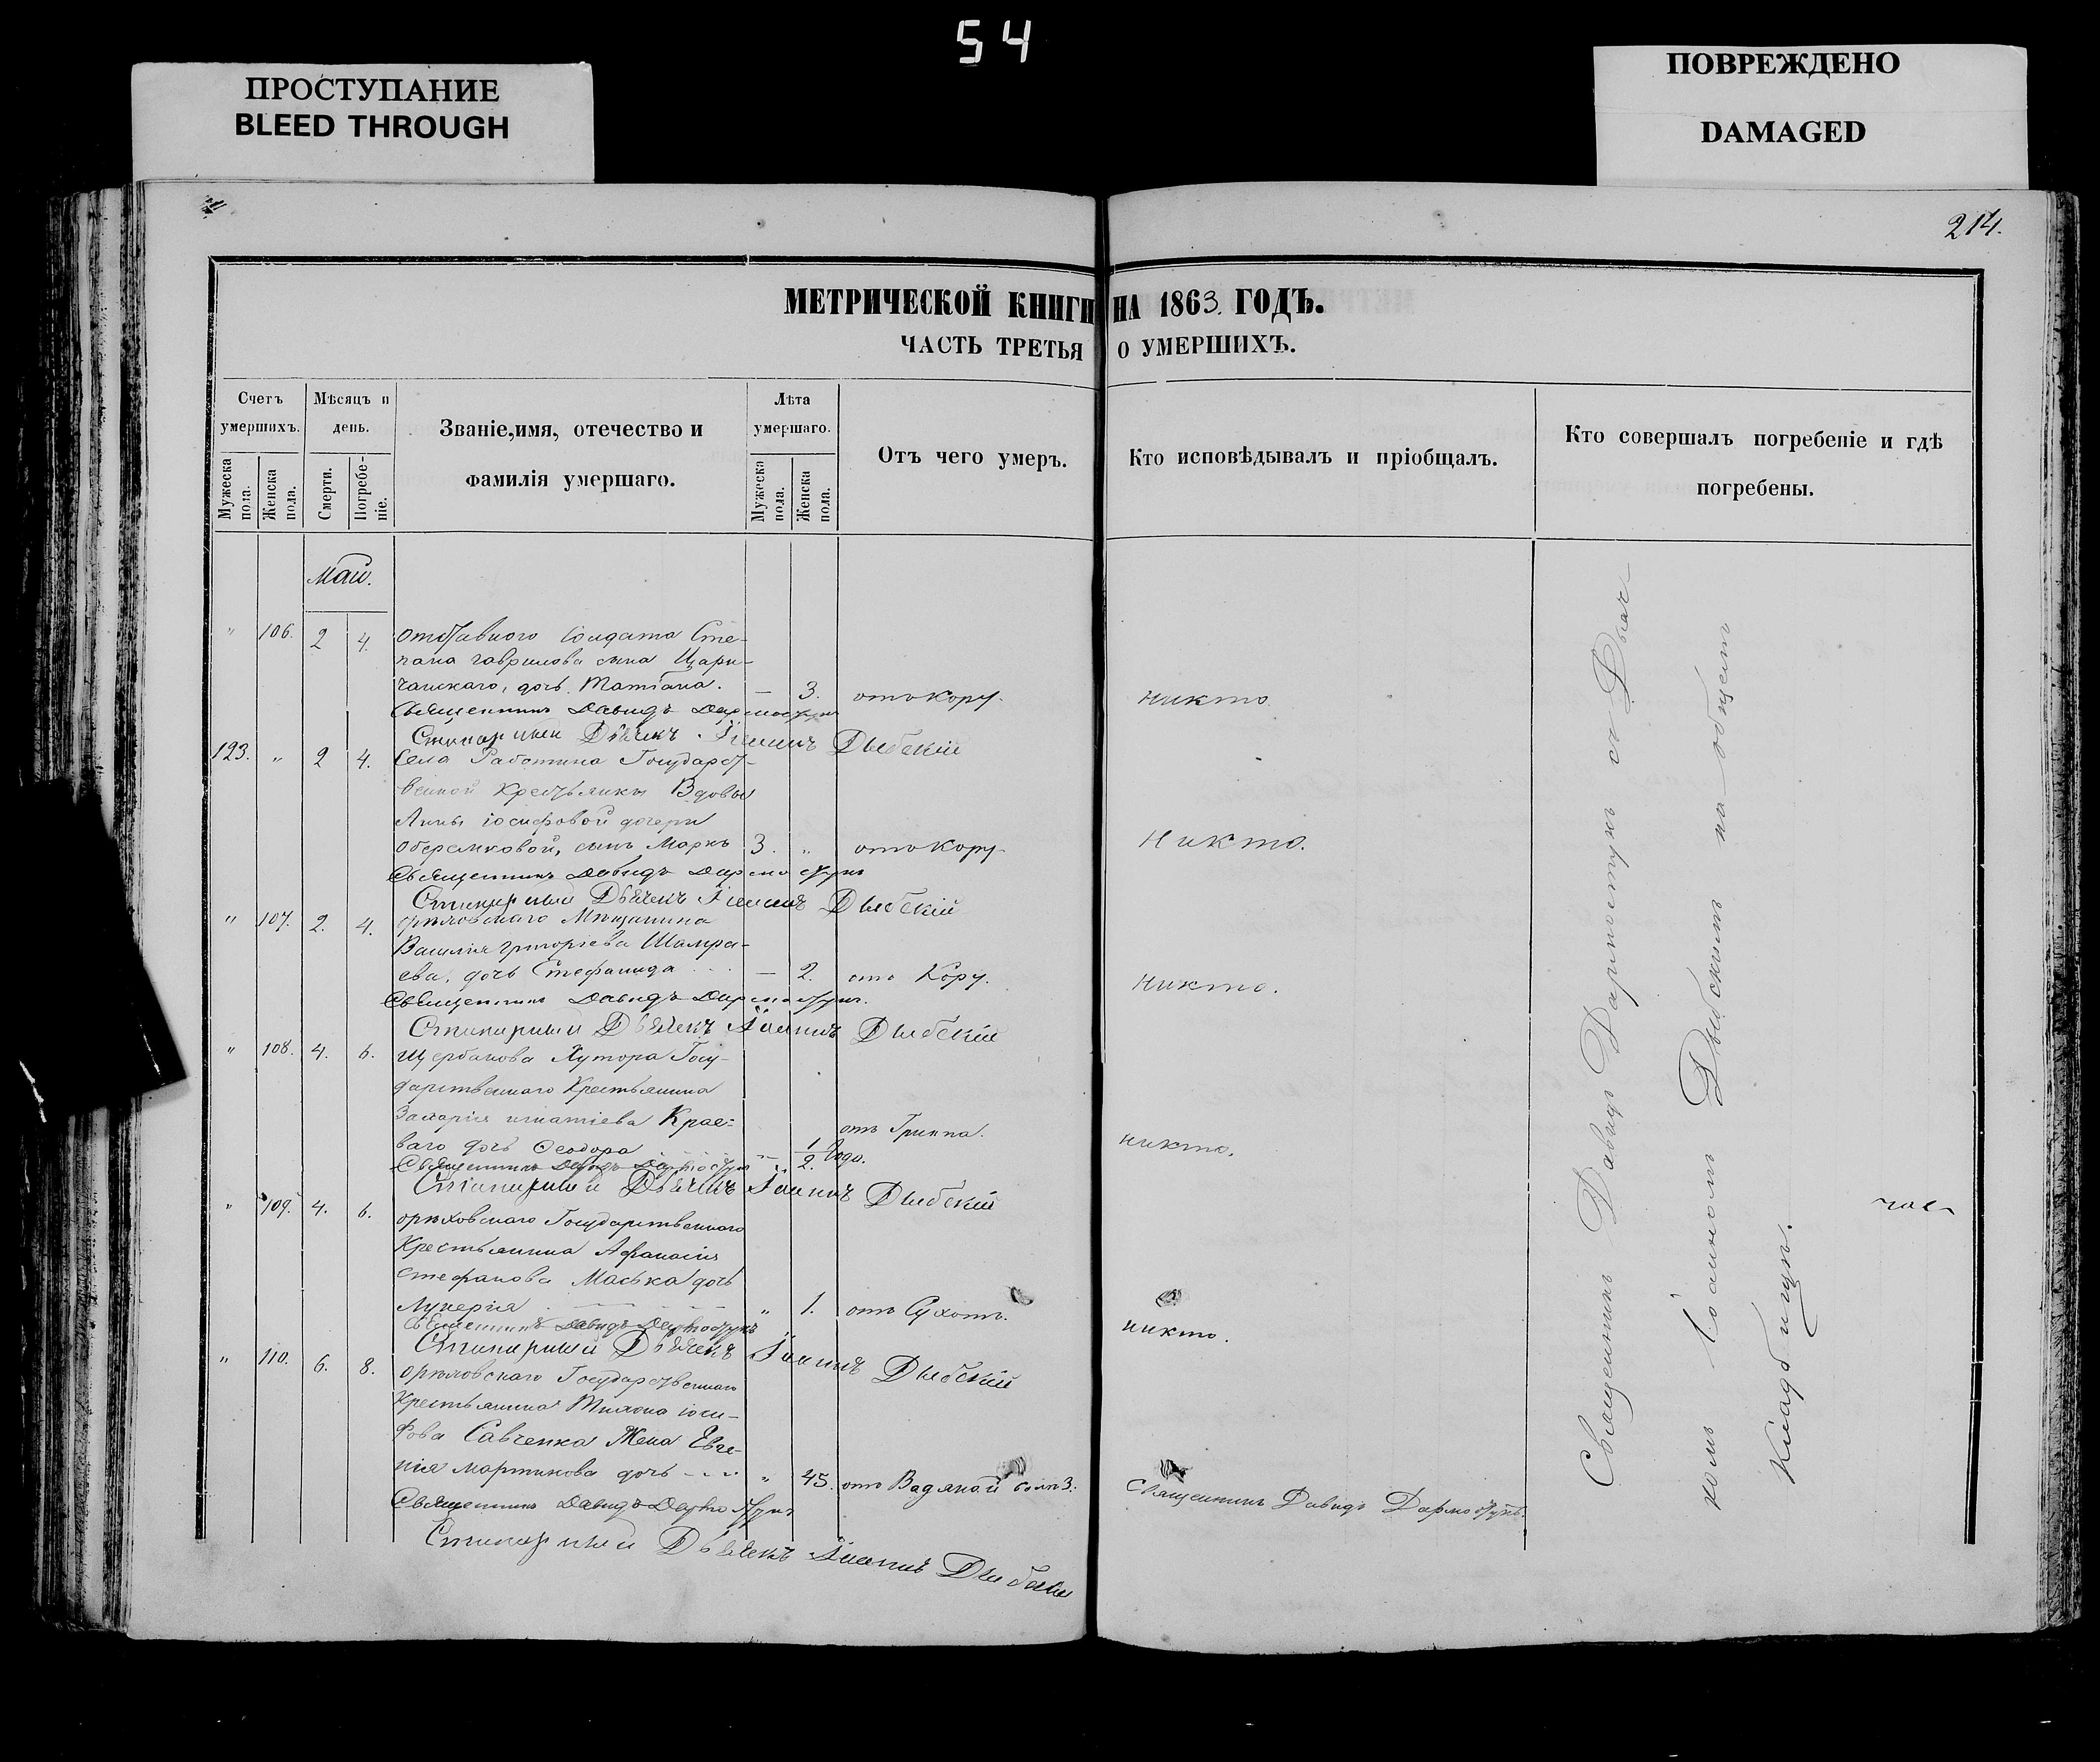 54
ПРОСТУПАНИЕ
BLEED THROUGH
ПОВРЕЖДЕНО
DAMAGED
214.
МЕТРИЧЕСКОЙ КНИГИ НА 1863. ГОДЪ.
ЧАСТЬ ТРЕТЬЯ О УМЕРШИХЪ.
Счетъ умершихъ.
Мѣсяцъ и день.
Званіе, имя, отечество и фамилія умершаго.
Лѣта умершаго.
Отъ чего умеръ.
Кто исповѣдывалъ и пріобщалъ.
Кто совершалъ погребеніе и гдѣ погребены.
Мужеска пола.
Женска пола.
Смерти.
Погребеніе.
Мужеска пола.
Женска пола.
Май.
" 106. 2 4. отставного Солдата Сте-
пана гаврилова сына Цари-
чанскаго, дочь Татіана. — 3. отъ Кору. никто
Священникъ Давидъ Дармостукъ
Стихарный Дьячекъ Іоаннъ Дыбскій
123. " 2 4. Села Работина Государст-
венной крестьянки Вдовы
Анны іосифовой дочери
сынъ Маркъ 3. " отъ Кору. Никто.
Священникъ Давидъ Дармостукъ
Стихарный Дьячекъ Іоаннъ Дыбскій
" 107. 2. 4. Мѣщанина
Василія григоріева Шамра-
ева, дочь Стефанида . . . — 2. отъ Кору. никто.
Священникъ Давидъ Дармостукъ.
Стихарный Дьячекъ Іоаннъ Дыбскій
" 108. 4. 6. Щербакова Хутора Госу-
дарственнаго Крестьянина
Захарія игнатіева Крае-
ваго дочь Феодора — 1/2 Года. отъ Гриппа. никто.
Священникъ Давидъ Дармостукъ
Стихарный Дьячекъ Іоаннъ Дыбскій
" 109. 4. 6. орѣховскаго Государственнаго
Крестьянина Афанасія
стефанова Маська дочь
Лукерія " 1. отъ Сухотъ. никто.
Священникъ Давидъ Дармостукъ
Стихарный Дьячекъ Іоаннъ Дыбскій
" 110. 6. 8. Государственнаго
Крестьянина Тихона іоси-
фова Савченка Жена Евге-
нія мартинова дочь " 45. отъ Водяной болѣз: Священникъ Давидъ Дармостукъ.
Священникъ Давидъ Дармостукъ
Стихарный Дьячекъ Іоаннъ Дыбскій
Священникъ Давидъ Дармостукъ съ Дьяч-
комъ Іоанномъ Дыбскимъ на общемъ
Кладбищѣ.